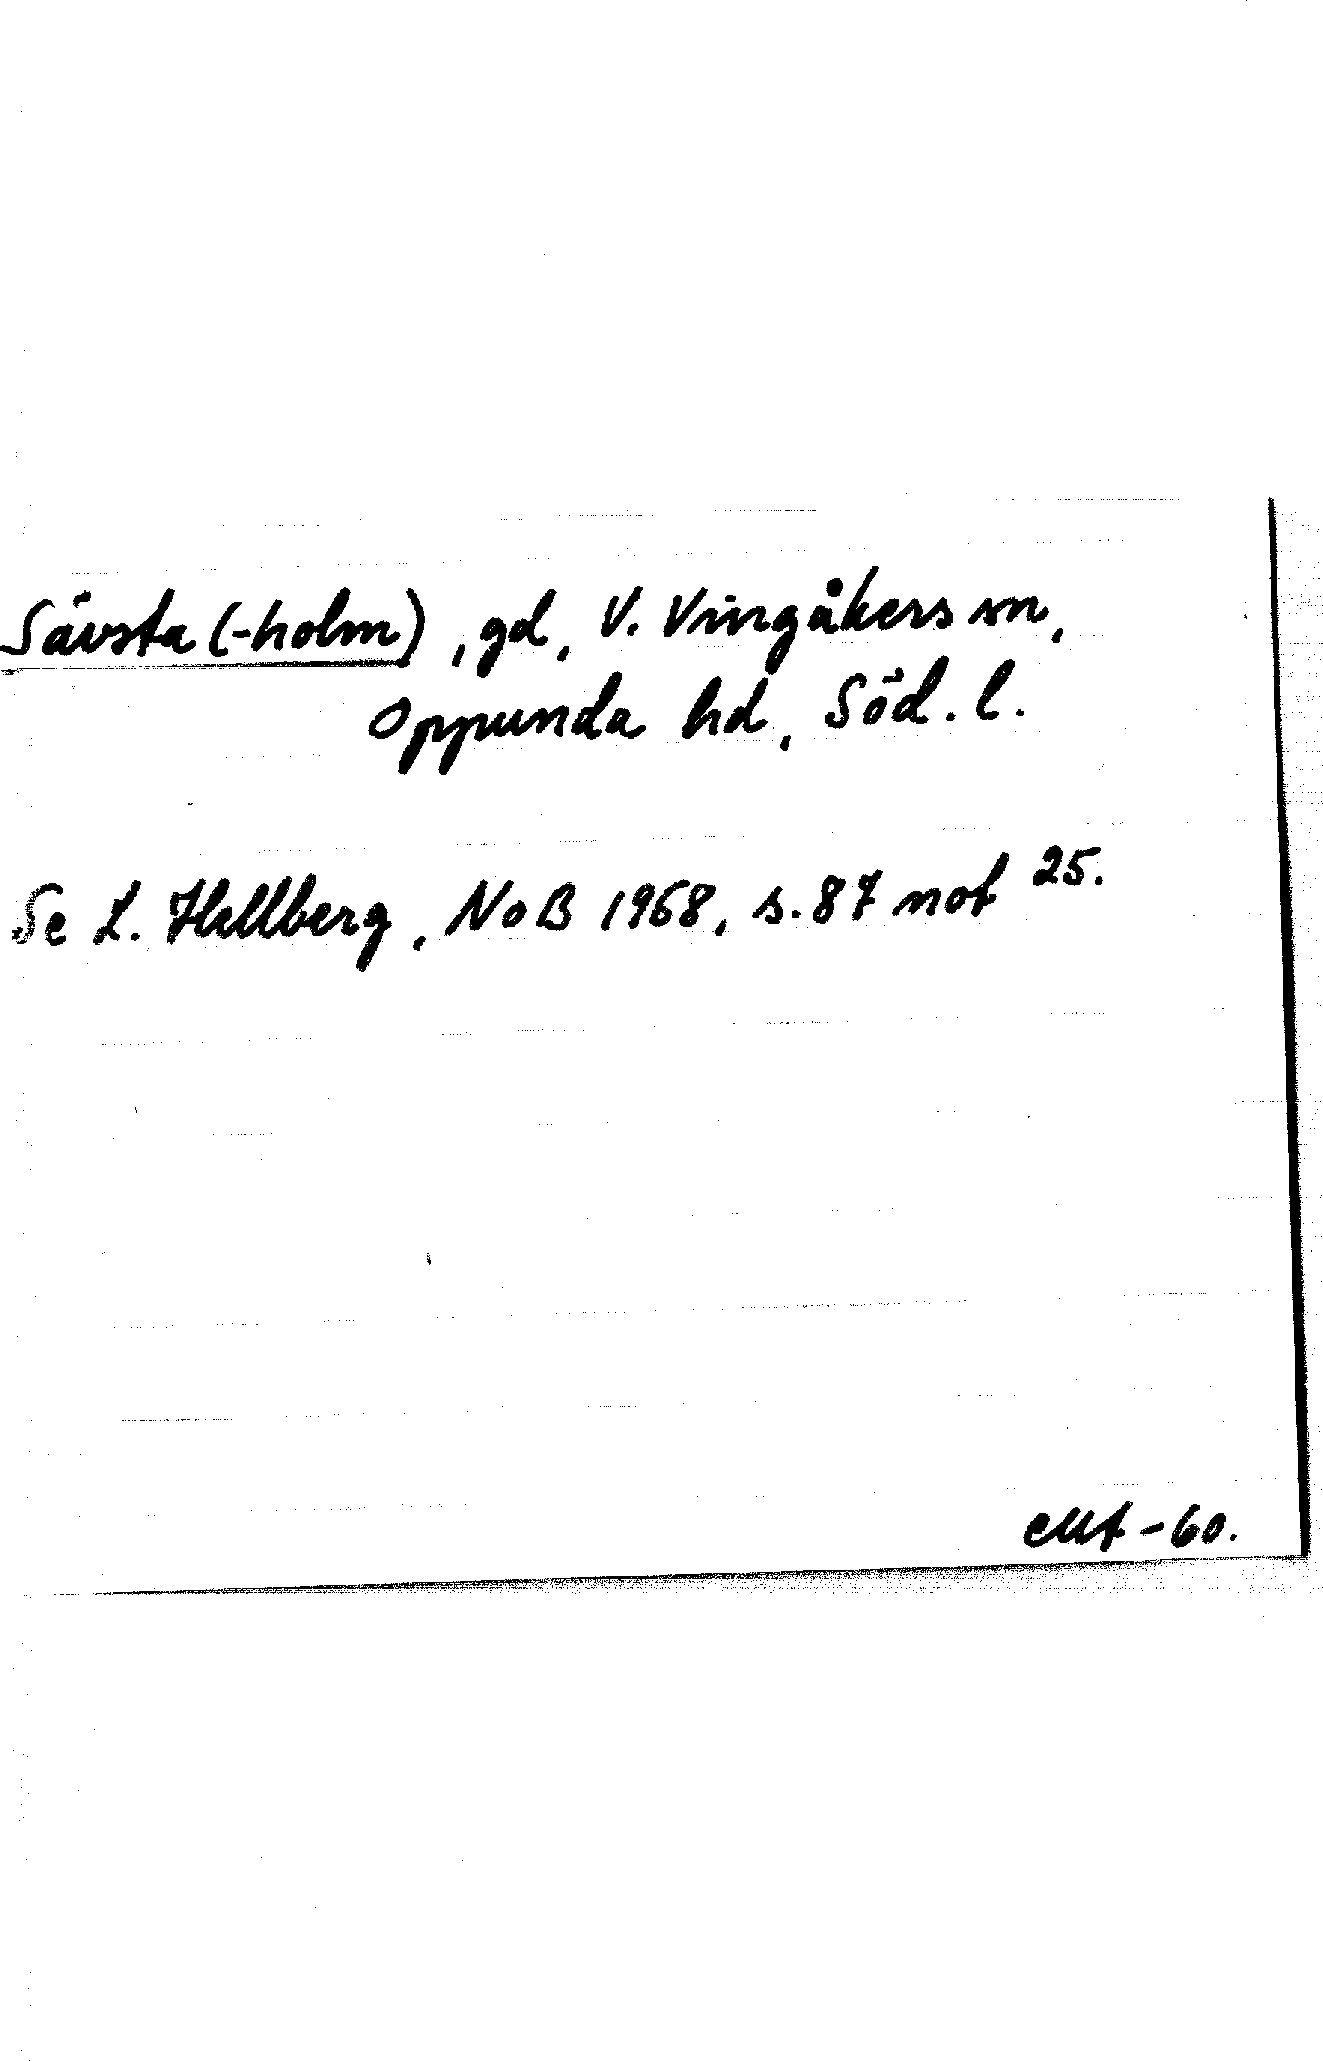 Sävsta (-holm), gd, V. Vingåkers sn,
Oppunda hd, Söd. l.
Se L. Hellberg, NoB 1968, s. 87 not 25.
-60.